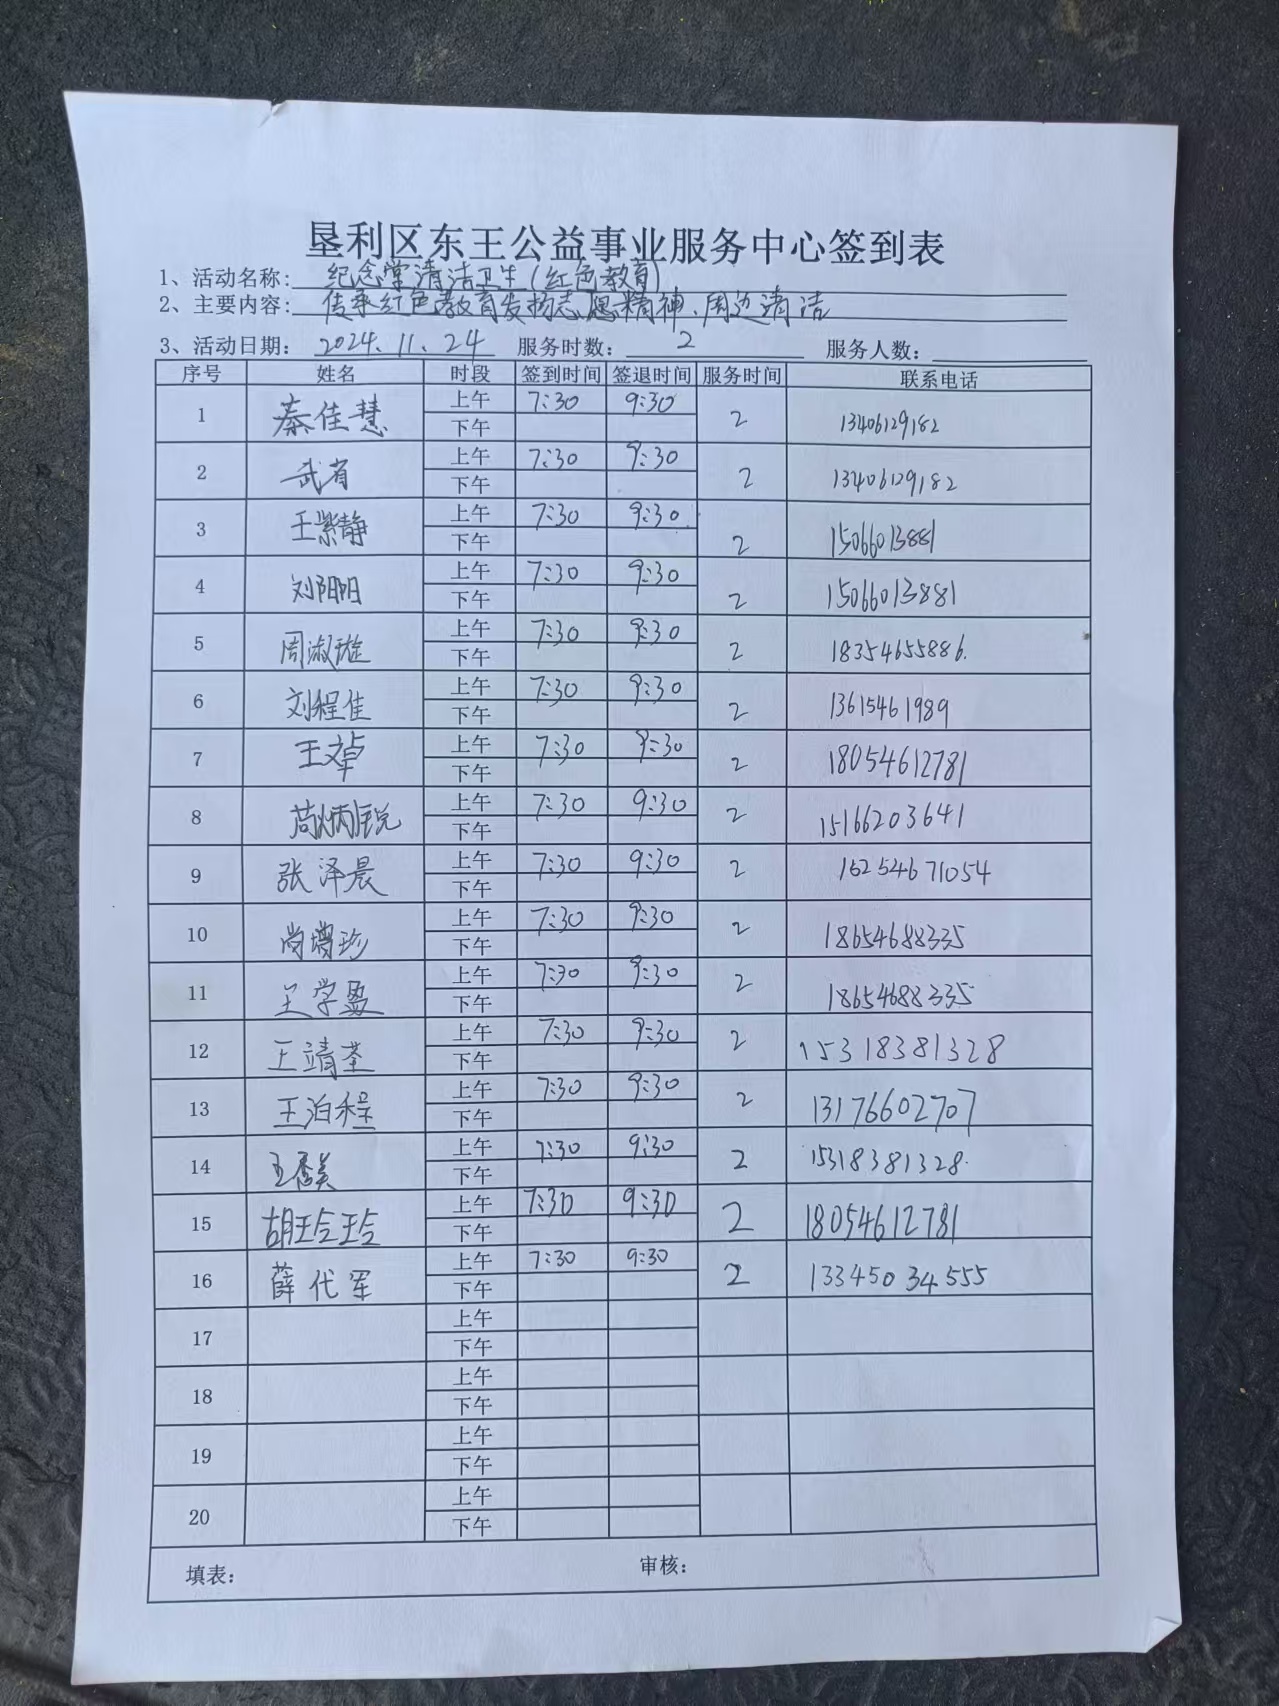 垦利区东王公益事业服务中心签到表
1、活动名称: 纪念堂清洁卫生(红色教育)
2、主要内容: 传承红色教育发扬志愿精神、周边清洁
3、活动日期: 2024.11.24 服务时数: 2 服务人数:
序号 姓名 时段 签到时间 签退时间 服务时间 联系电话
1 秦佳慧 上午 7:30 9:30 2 13406129182
下午
2 武省 上午 7:30 9:30 2 13406129182
下午
3 王紫静 上午 7:30 9:30 2 15066013881
下午
4 刘阳阳 上午 7:30 9:30 2 15066013881
下午
5 周淑璇 上午 7:30 9:30 2 18354655886.
下午
6 刘程佳 上午 7:30 9:30 2 13615461989
下午
7 王文卓 上午 7:30 9:30 2 18054612781
下午
8 苟炳锐 上午 7:30 9:30 2 15166203641
下午
9 张泽晨 上午 7:30 9:30 2 15254671054
下午
10 尚增珍 上午 7:30 9:30 2 18654688335
下午
11 王学盈 上午 7:30 9:30 2 18654688335
下午
12 王靖荃 上午 7:30 9:30 2 15318381328
下午
13 王泊程 上午 7:30 9:30 2 13176602707
下午
14 王秀美 上午 7:30 9:30 2 15318381328.
下午
15 胡玲玲 上午 7:30 9:30 2 18054612781
下午
16 薛代军 上午 7:30 9:30 2 13345034555
下午
17 上午
下午
18 上午
下午
19 上午
下午
20 上午
下午
填表: 审核: